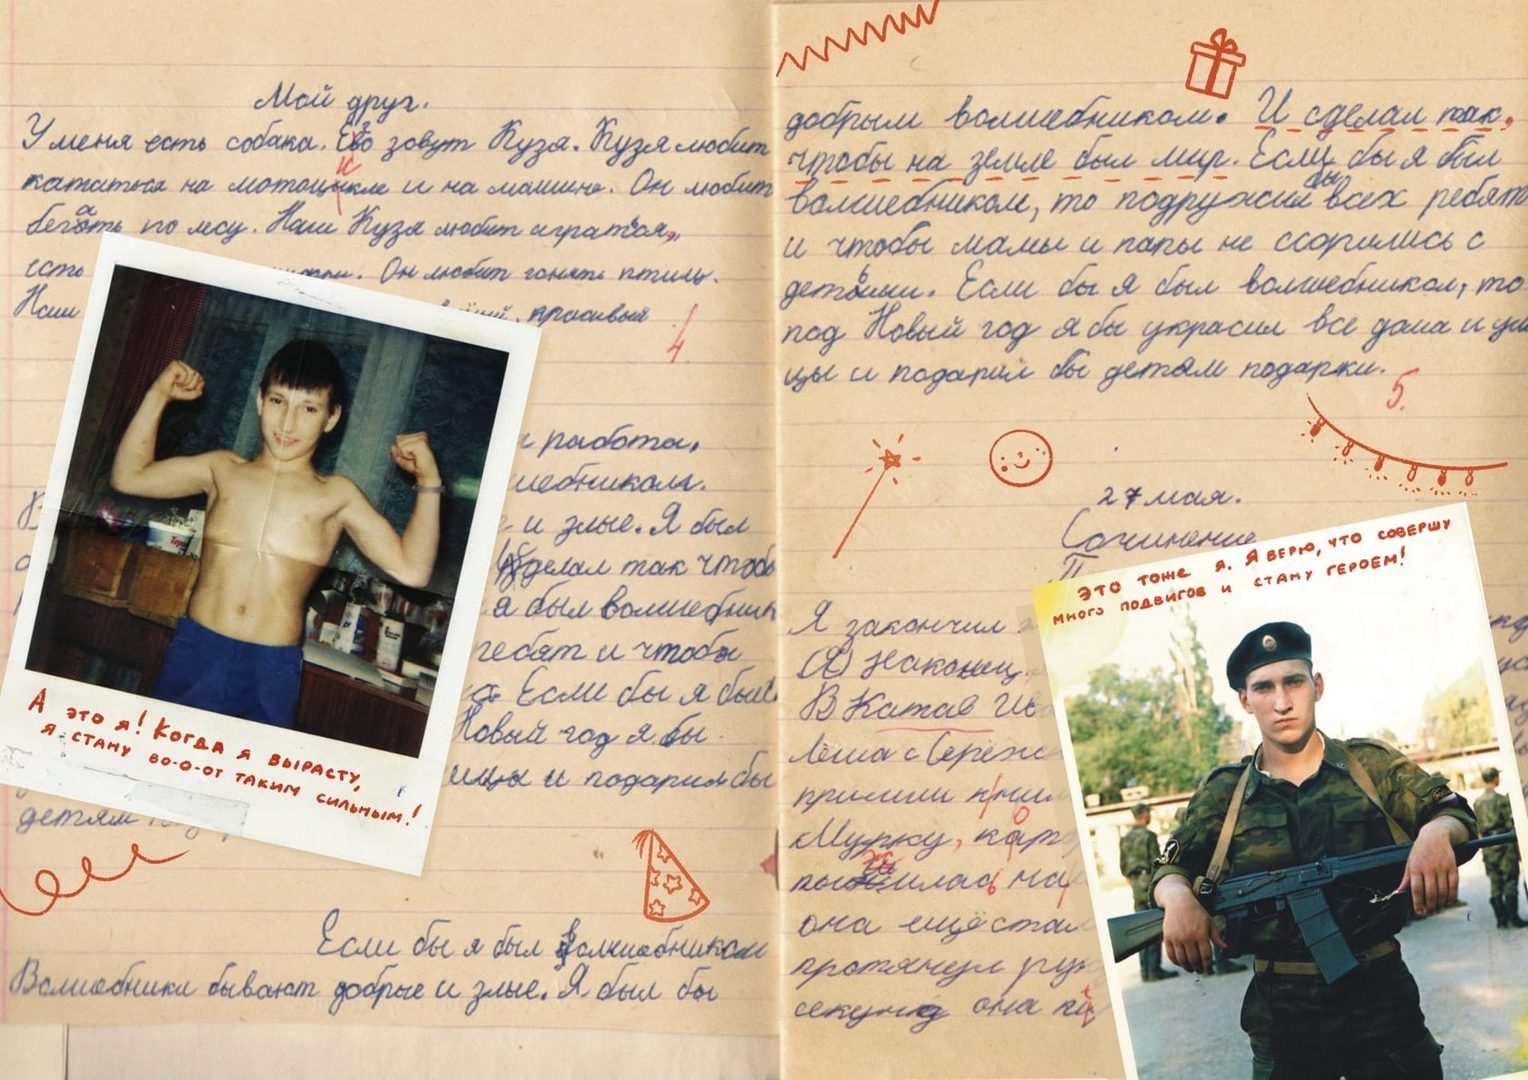 Мой друг.
У меня есть собака. Его зовут Кузя. Кузя любит
кататься на мотоцикле и на машине. Он любит
бегать по лесу. Наш Кузя любит играться,
есть
Он любит гонять птиц.
Наш
красивый
4.
работа.
и злые. Я был
сделал так чтобы
я был волшебник
ребят и чтобы
Если бы я был
Новый год я бы
и подарил бы
детям
А это я! Когда я вырасту,
я стану во-о-от таким сильным!
Если бы я был волшебником
Волшебники бывают добрые и злые. Я был бы
добрым волшебником. И сделал так,
чтобы на земле был мир. Если бы я был
волшебником, то подружил бы всех ребят
и чтобы мамы и папы не ссорились с
детьми. Если бы я был волшебником, то
под Новый год я бы украсил все дома и ули
цы и подарил бы детям подарки.
5.
27 мая.
Сочинение
Я закончил
Наконец
В Катав Ив
Леша с Сережей
пришли
Мурку,
она ещё
протянул
секунд она
Это тоже я. Я верю, что совершу
много подвигов и стану героем!